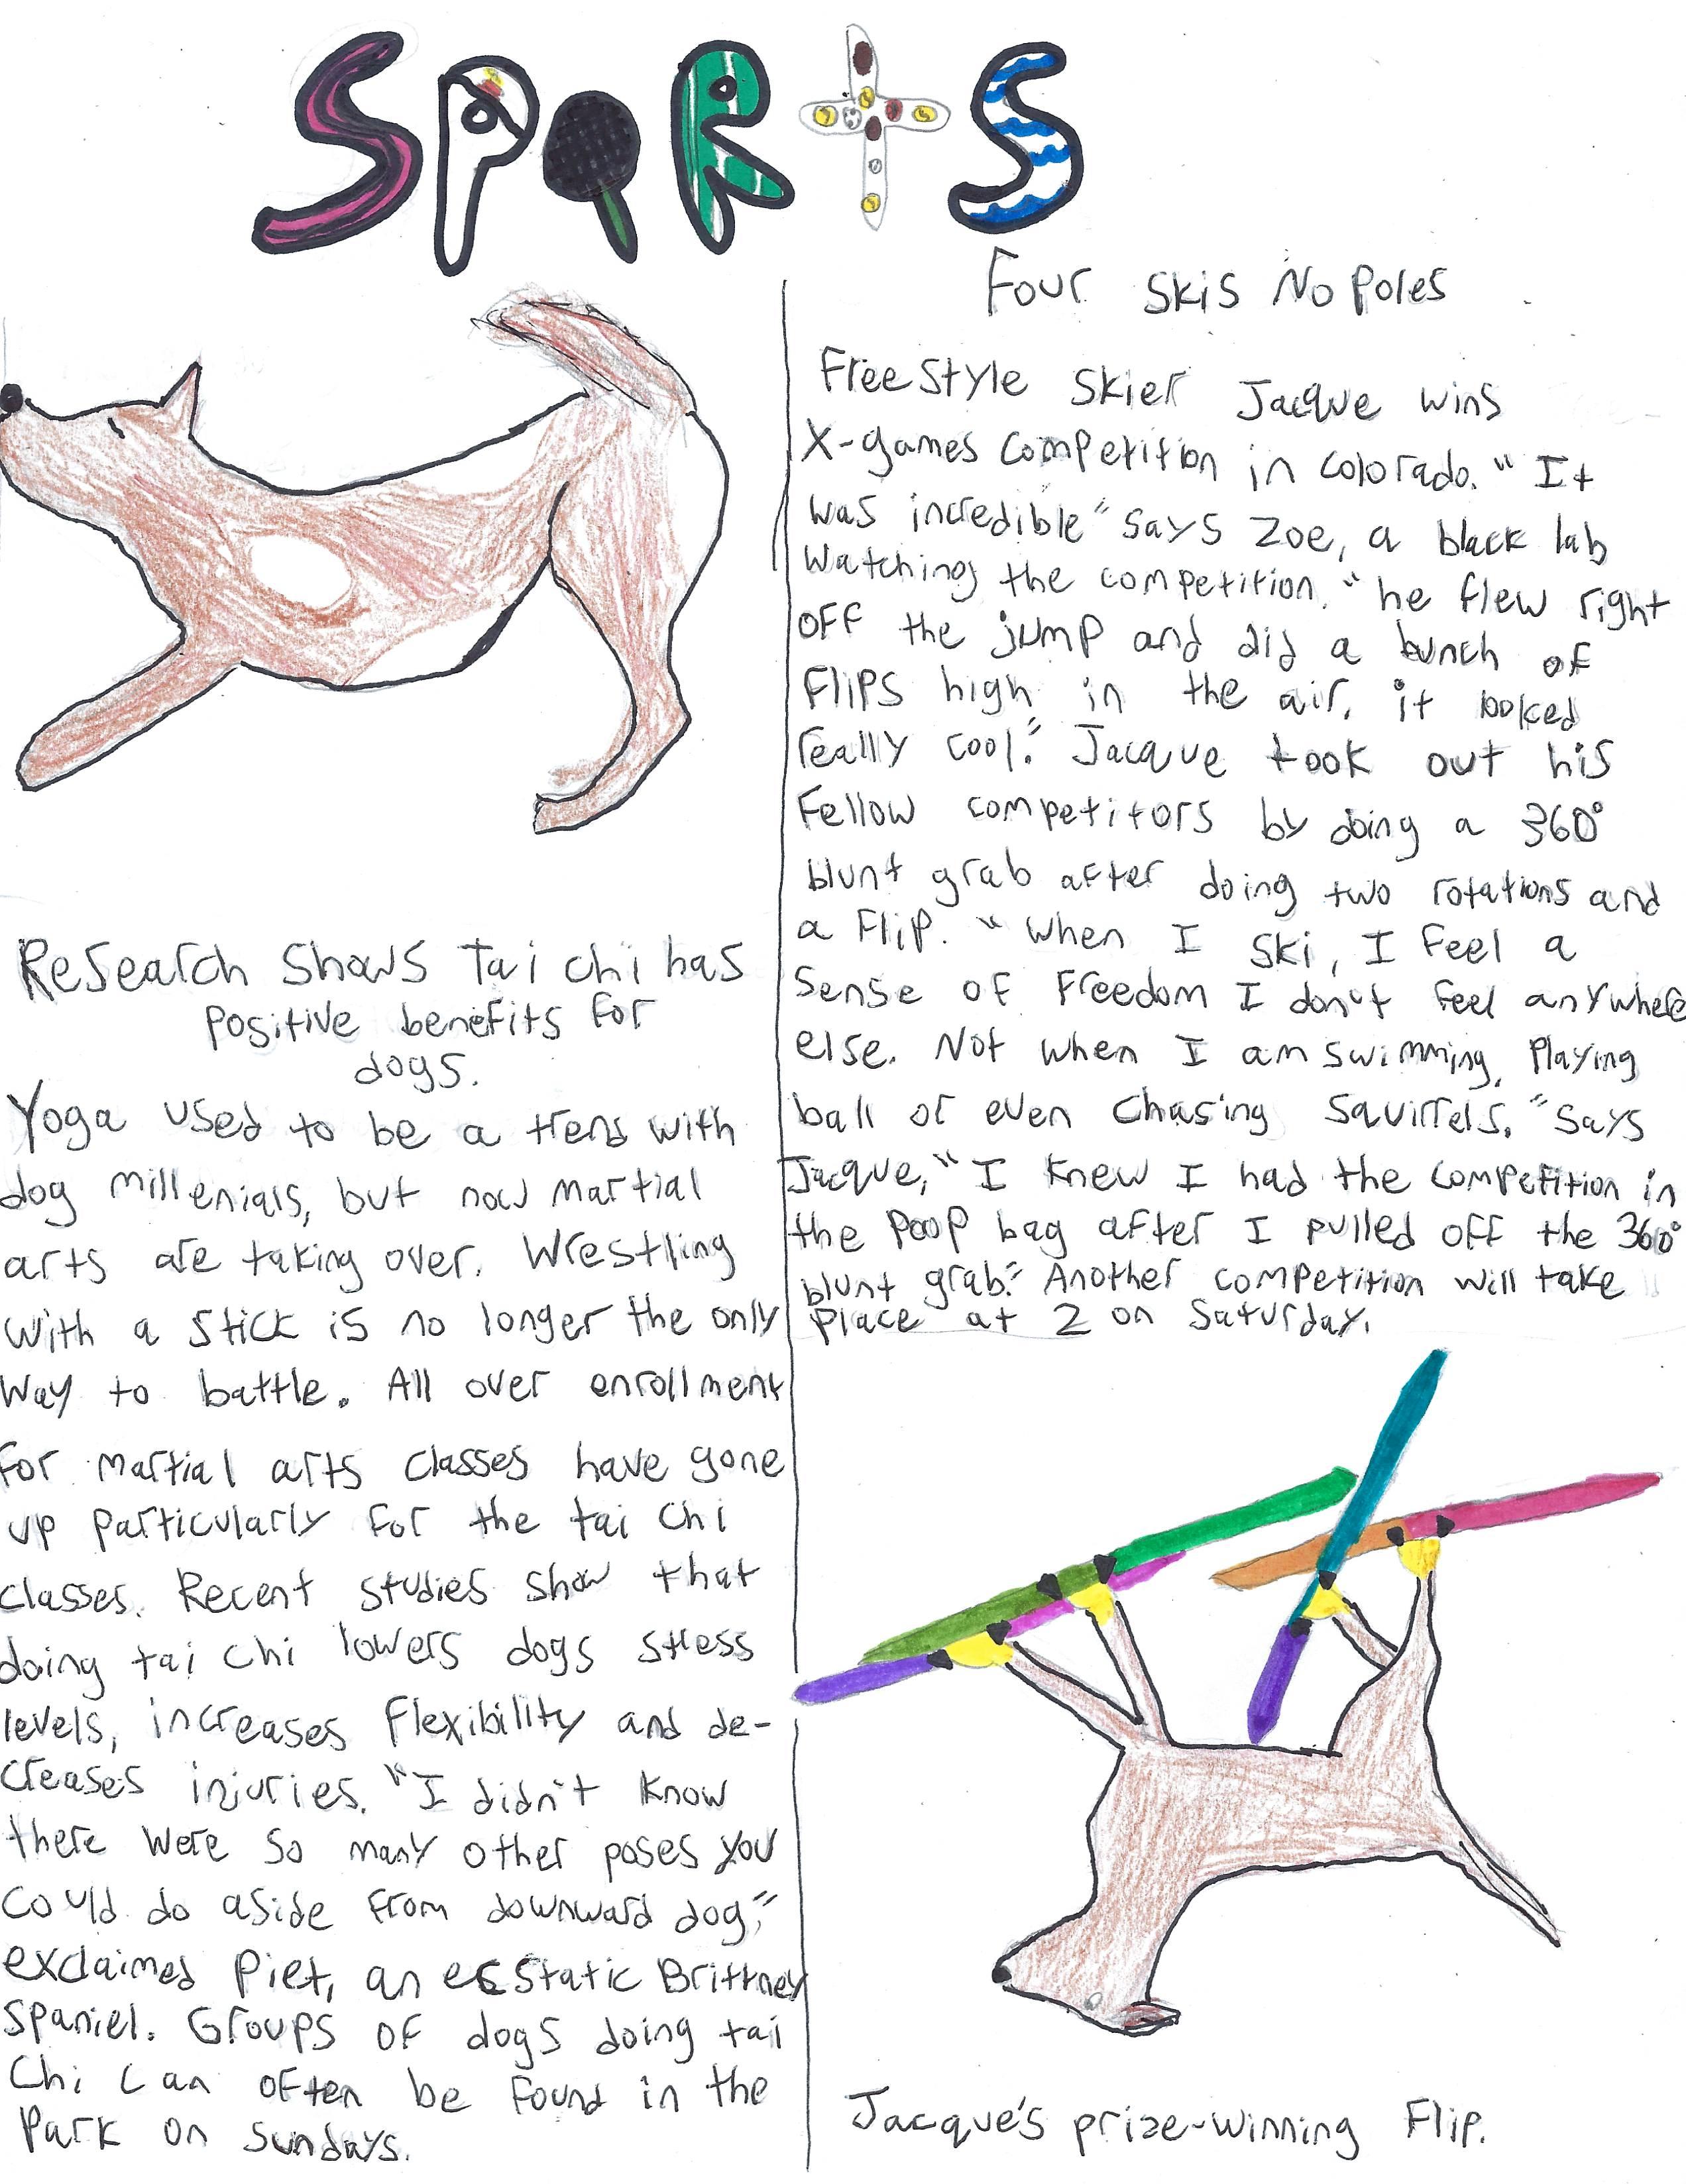 SPORTS
Research shows Tai chi has
positive benefits for
dogs.
Yoga used to be a trend with
dog millenials, but now martial
arts are taking over. Wrestling
with a stick is no longer the only
way to battle. All over enrollment
for martial arts classes have gone
up particularly for the tai chi
classes. Recent studies show that
doing tai chi lowers dogs stress
levels, increases flexibility and de-
creases injuries. "I didn't know
there were so many other poses you
could do aside from downward dog,"
exclaimed Piet, an ecstatic Brittney
Spaniel. Groups of dogs doing tai
chi can often be found in the
park on sundays.
Four Skis No Poles
Freestyle skier Jacque wins
X-games competition in colorado. "It
was incredible" says Zoe, a black lab
watching the competition. "he flew right
off the jump and did a bunch of
flips high in the air. it looked
really cool." Jacque took out his
fellow competitors by doing a 360°
blunt grab after doing two rotations and
a flip. "when I ski, I feel a
sense of freedom I don't feel anywhere
else. Not when I am swimming, playing
ball or even chasing squirrels." says
Jacque, "I knew I had the competition in
the poop bag after I pulled off the 360°
blunt grab." Another competition will take
place at 2 on saturday.
Jacque's prize-winning flip.